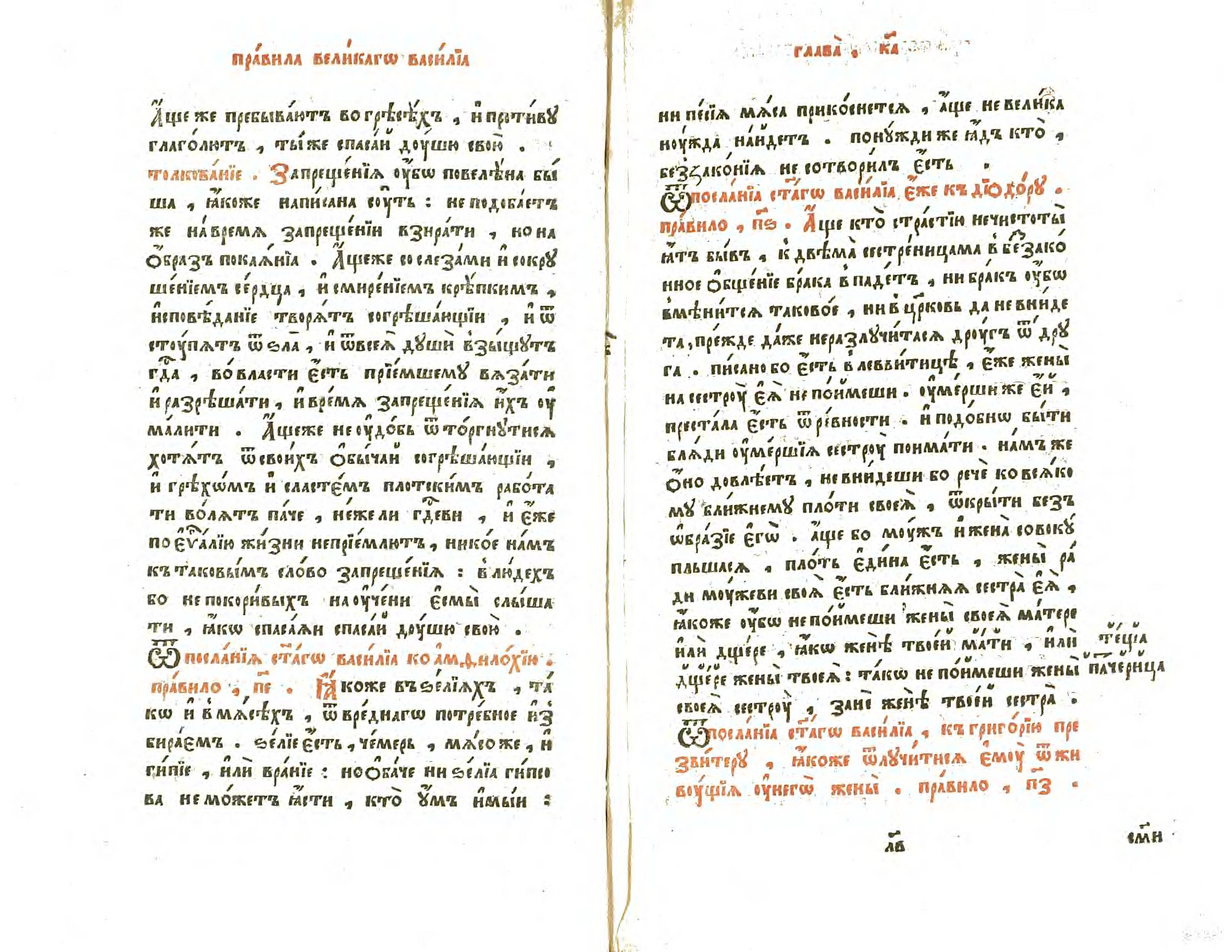 пра́вила вели́кагѡ васи́лїа
А҆́ще же пребыва́ютъ во грѣсѣ́хъ , и҆ проти́ву
глаго́лютъ , ты́ же спаса́й доу́шю свою̀ .
толкова́нїе . Запреще́нїѧ оу҆́бѡ повелѣ́на бы́
ша , ꙗ҆́коже напи́сана соу́ть : не подоба́етъ
же на́ время запреще́нїи взира́ти , но на
ѻ҆́бразъ покаѧ́нїа . А҆́щеже со слеза́ми и҆ сокру
ше́нїемъ се́рдца , и҆ смире́нїемъ крѣ́пкимъ ,
и҆сповѣ́данїе творѧ́тъ согрѣша́ющїи , и҆ ѿ
стоу́пятъ ѿ ѕла̀ , и҆ ѿвсеѧ̀ души̏ взы́щутъ
гд҇а , во́ власти є҆́сть прїе́мшему вѧза́ти
и҆ разрѣша́ти , и҆ вре́мѧ запреще́нїѧ и҆́хъ оу҆
ма́лити . А҆́щеже не оу҆до́бь ѿто́ргнутисѧ
хотѧ́тъ ѿ свои́хъ ѻ҆бы́чай согрѣша́ющїи ,
и҆ грѣхѡ́мъ и҆ сласте́мъ пло́тскимъ рабо́та
ти во́лѧтъ па́че , не́же ли гд҇еви , и҆ є҆́же
по є҆ѵⷢ҇алїю жи́зни непрїе́млютъ , нико́е на́мъ
къ таковы́мъ сло́во запреще́нїѧ : в лю́дехъ
бо не покори́выхъ наоуче́ни є҆смы̀ слы́ша
ти , ꙗ҆́кѡ спаса́ѧи спаса́й доу́шю свою̀ .
Ѿ посла́нїѧ ст҃а́гѡ васи́лїа ко амѳило́хїю .
пра́вило , п҃е . Ꙗ҆́коже въ ѕе́лїѧхъ , та́
кѡ и҆ в мѧ́сѣхъ , ѿ вре́днагѡ потре́бное и҆з̾
бира́емъ . ѕе́лїе є҆́сть , че́мерь , мѧ́со же , и҆
ги́пїе , и҆лѝ вра́нїе : но ѻ҆ба́че ни ѕе́лїа ги́псо
ва не мо́жетъ ꙗ҆́сти , кто̀ ᲂу҆́мъ и҆мы́и :
глава̀ , к҃а
ни пе́сїѧ мѧ́са прико́снетсѧ , а҆́ще не вели́ка
ноу́жда на́йдетъ . пону́жди же ꙗ҆́дъ кто̀ ,
беззако́нїѧ не сотвори́лъ є҆́сть .
Ѿ посла́нїа ст҃а́гѡ васи́лїа , є҆́же къ дїѻдо́ру .
пра́вило , п҃ѕ . А҆́ще кто̀ стра́стїю нечистоты̀
ꙗ҆́тъ бы́въ , к двѣма̀ сестрени́цама в беззако́
нное ѻ҆бще́нїе бра́ка впаде́тъ , ни бра́къ оу҆́бѡ
вмѣни́тсѧ таково́е , ни в цр҃ковь да не вни́де
та , пре́жде да́же неразлучи́тасѧ дроу́гъ ѿ дру
га . пи́сано бо є҆́сть в левви́тицѣ , є҆́же жены̀
на сестроу̀ є҆ѧ̀ не по́ймеши . оу҆ме́рши же є҆́й ,
преста́ла є҆́сть ѿ ре́вности . и҆ подо́бнѡ бы́ти
блѧ́ди оу҆ме́ршїѧ сестроу̀ поима́ти . на́мъ же
ѻ҆но̀ довлѣ́етъ , не вни́деши бо речѐ ко всѧ́ко
му бли́жнему пло́ти своеѧ̀ , ѿкры́ти безъ
ѡ҆бра́зїе є҆гѡ̀ . а҆́ще бо моу́жъ и҆ жена̀ совоку́
пльшасѧ , пло́ть є҆ди́на є҆́сть , жены̀ ра́
ди моу́жеви своѧ̀ є҆́сть бли́жнѧѧ сестра̀ є҆ѧ̀ ,
ꙗ҆́коже оу҆́бѡ не по́ймеши жены̀ своеѧ̀ ма́тере
и҆лѝ дще́ре , ꙗ҆́кѡ женѣ̀ твое́й ма́ти , и҆лѝ
дще́ре жены̀ твоеѧ̀ : та́кѡ не по́ймеши жены̀
своеѧ̀ сестроу̀ , занѐ женѣ̀ твое́й сестра̀ .
те́щїа
па́черица
Ѿ посла́нїа ст҃а́гѡ васи́лїа , къ григо́рїю пре
зви́теру , ꙗ҆́коже ѿлучи́тисѧ є҆моу̀ ѿ жи
воу́щїѧ оу҆ негѡ̀ жены̀ . пра́вило , п҃з .
л҃в
см҃и